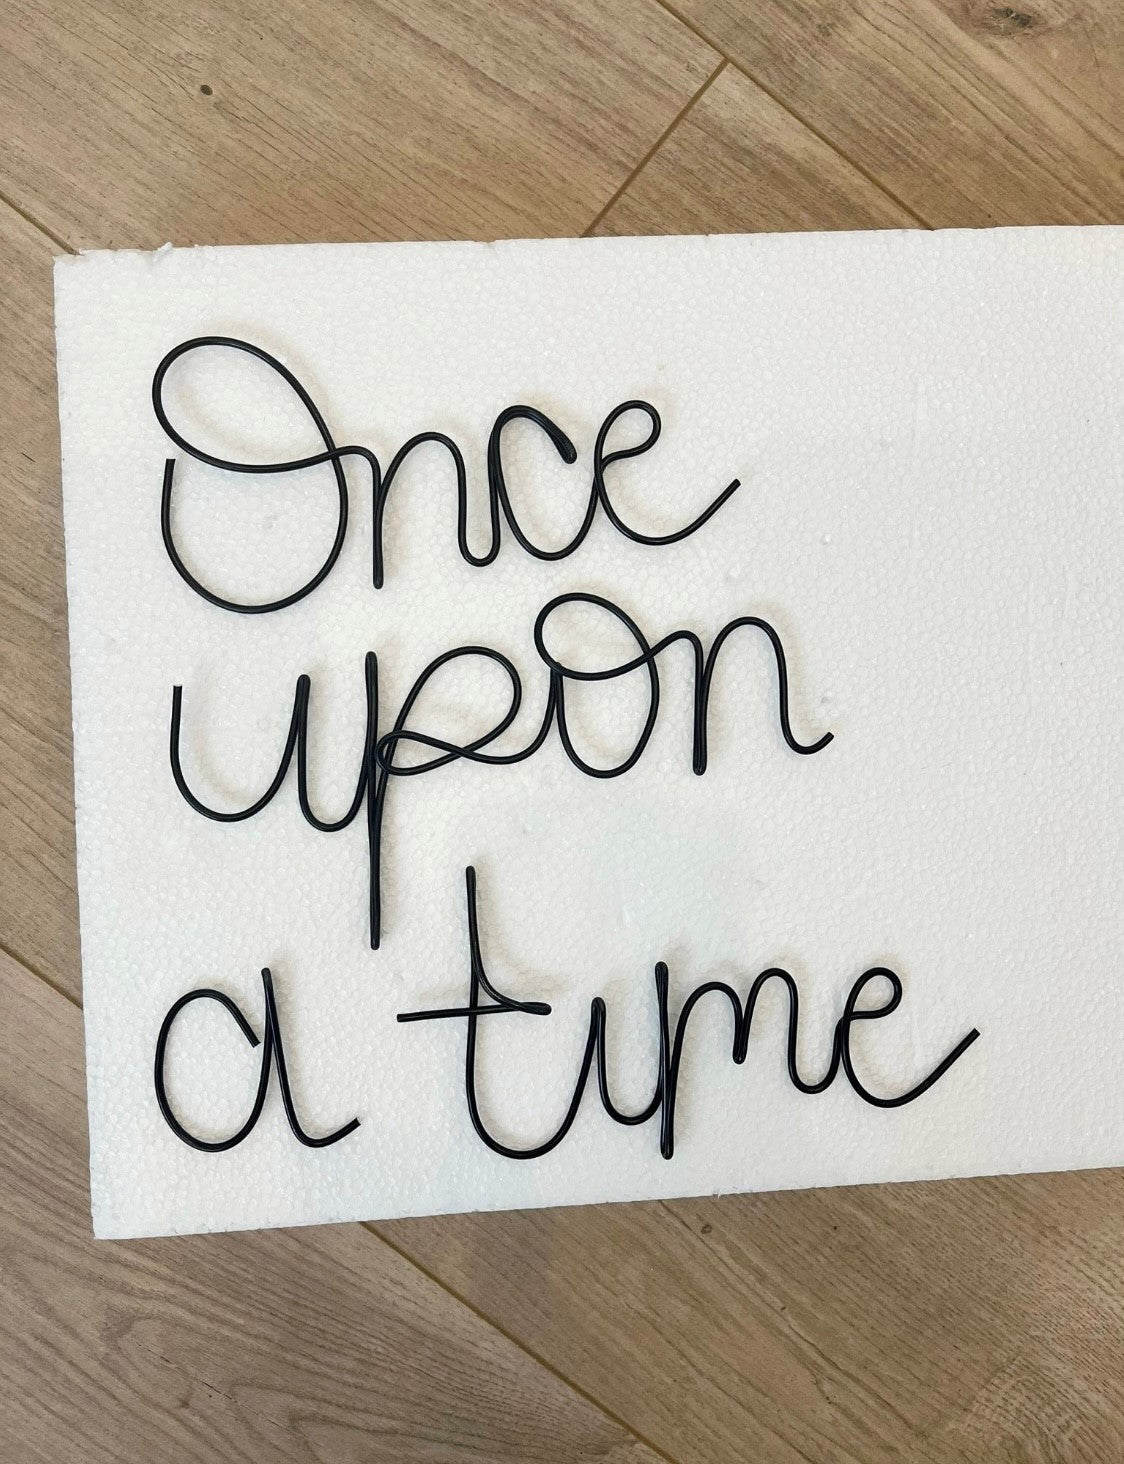 Once
upon
a time